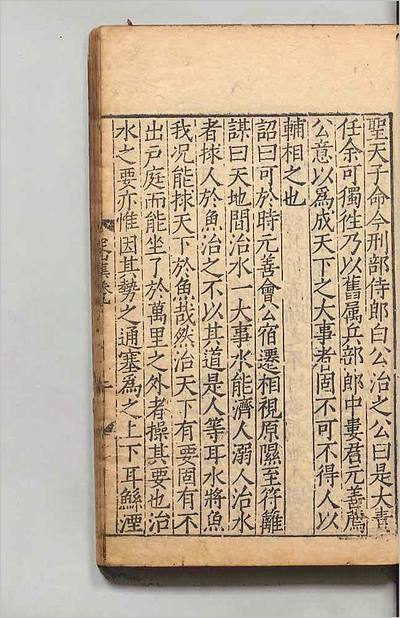 聖天子命今刑部侍郎白公治之公曰是大責
任余可獨徃乃以舊属兵部郎中婁君元善薦
公意以為成天下之大事者固不可不得人以
輔相之也
詔曰可於時元善會公宿遷相視原隰至符離
謀曰天地間治水一大事水能濟人溺人治水
者捄人於魚治之不以其道是人等耳水將魚
我况能捄天下於魚哉然治天下有要固有不
出戸庭而能坐了於萬里之外者操其要也治
水之要亦惟因其勢之通塞為之上下耳鯀湮